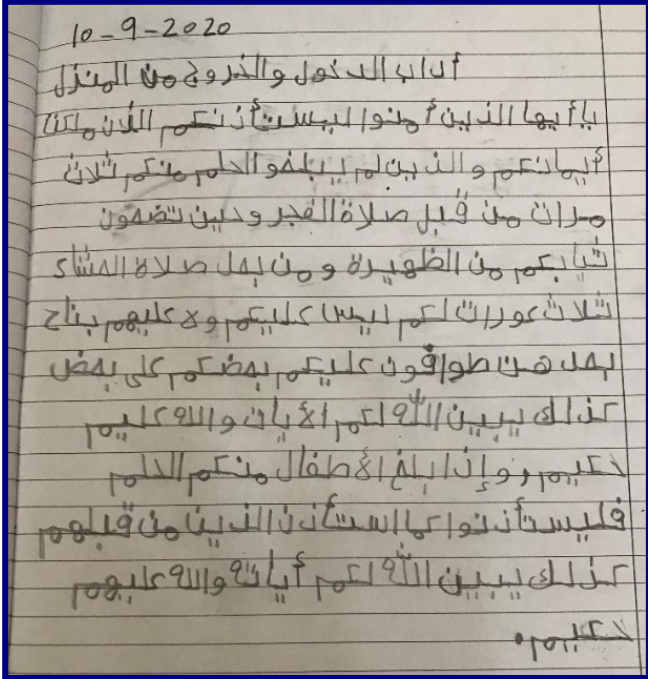 10-9-2020
أداب الدخول والخروج من المنزل
يا أيها الذين أمنوا ليستأذنكم الذن ملكتا
أيمانكم والذين لم يبلغو الحلم منكم ثلاث
مرات من قبل صلاة الفجر وحين تضعون
ثيابكم من الظهيرة ومن بعد صلاة العشاء
ثلاث عورات لكم ليس عليكم ولا عليهم جناح
بعد هن طوافون عليكم بعضكم على بعض
كذلك يبين الله لكم الأيات والله عليم
حكيم، وإذا بلغ الأطفال منكم الحلم
فليستأذنوا كما استأذن الذين من قبلهم
كذلك يبين الله لكم أياته والله عليهم
حكيم.